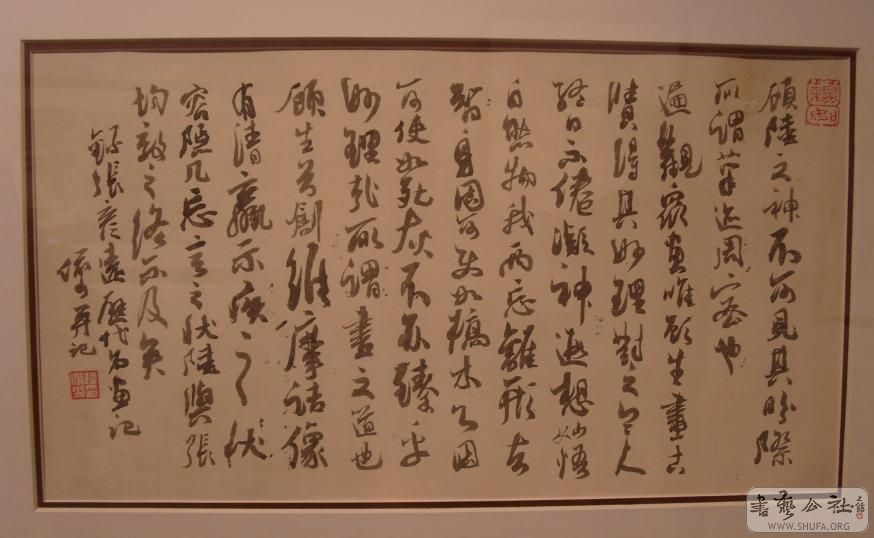 顧陸之神不可見其盼際
所謂筆迹周密也
遍觀眾畫唯顧生畫古
賢得其妙理對之令人
終日不倦凝神遐想妙悟
自然物我兩忘離形去
智身固可使如槁木心固
可使如死灰不亦臻乎
妙理哉所謂畫之道也
顧生首創維摩詰像
有清羸示病之狀
容隱几忘言之狀陸與張
均效之終不及矣
錄張彥遠歷代名畫記
并記
書藝公社
WWW.SHUFA.ORG